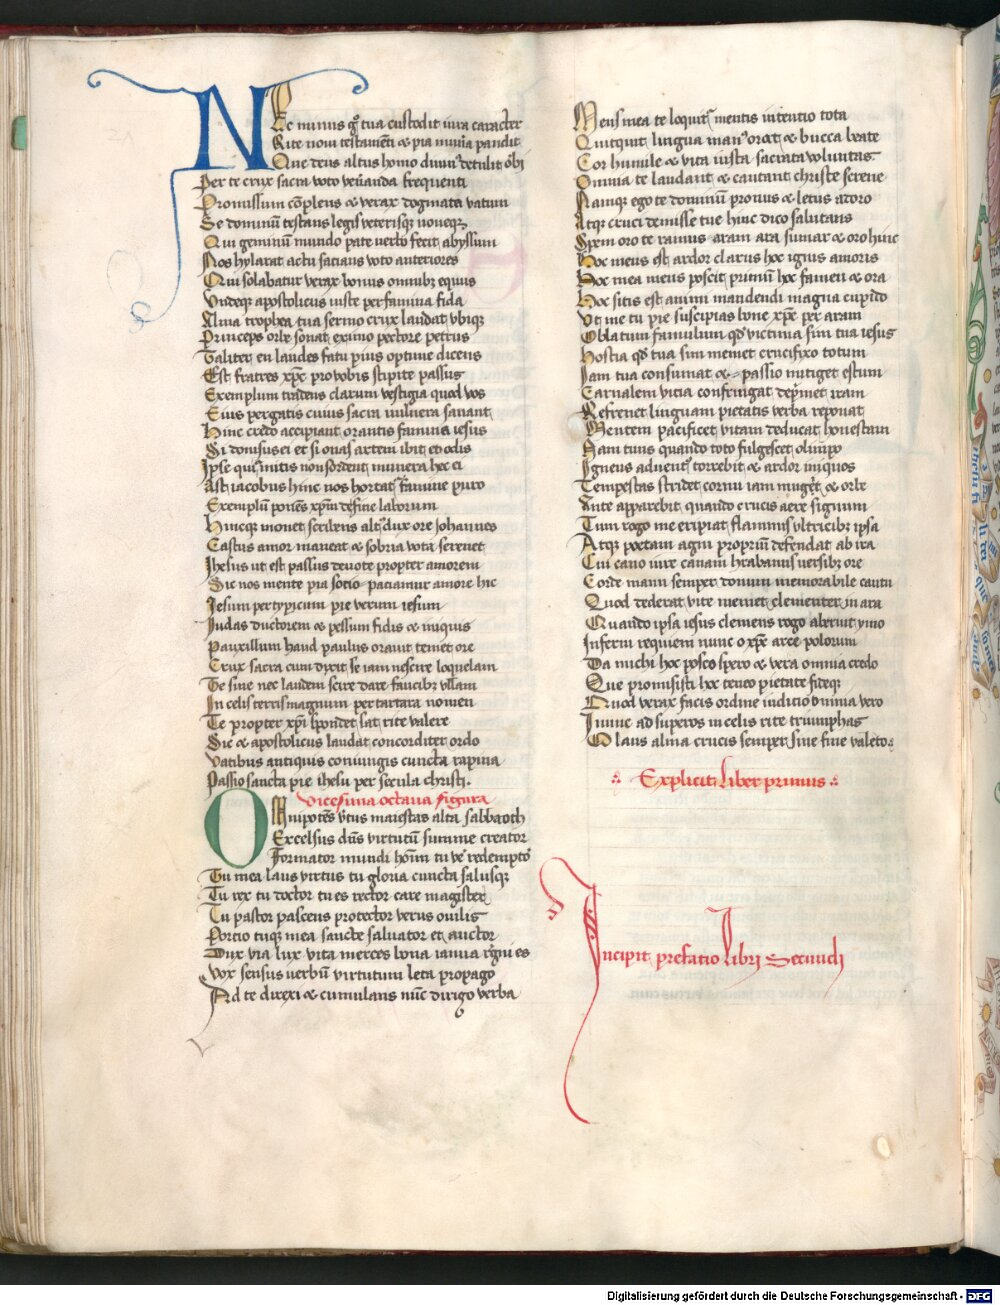 Nec minus qͥ tua custodit iura caracter
Rite noui testamēti & pia munia pandit
Que deus altus homo diuīͭ detulit orbi
Per te crux sacra uoto uenāda frequenti
Promissum cōplens & uerax dogmata vatum
Se dominū testans legis veterisqꝫ noueqꝫ
Qui geminū mundo pate uerbo fecit abyssum
Nos hylarat actu sacians voto anteriores
Qui solabatur verax bonus omnibꝫ equus
Vndeqꝫ apostolicus iuste per famina fida
Alma trophea tua sermo crux laudat vbiqꝫ
Princeps orbe sonat eximo pectore petrus
Taliter en laudes fatu pius optime dicens
Est fratres xp̄c pro vobis stipite passus
Exemplum tradens clarum vestigia quod vos
Eius pergatis cuius sacra uulnera sanant
Hinc credo accipiant orantis famina iesus
Ipse qui mitis non sordent munera hec ei
Ast iacobus hinc nos hortatͬ famine puro
Exemplū ponens xpm̄ define laborum
Hincqꝫ monet scribens altͬ dux ore Johannes
Castus amor maneat & sobria vota serenet
Jhesus ut est passus deuote propter amorem
Sic nos mente pia socio paciamur amore hic
Iesum per typicum pie verum iesum
Iudas ductorem & pessum fidis & iniquis
Pauxillum haud paulus orauit temet ore
Crux sacra cum dixit se iam nescire loquelam
Te sine nec laudem scire dare faucibꝫ vllam
In celis terris magnum per tartara nomen
Te propter xpi spondet sat rite valere
Sic & apostolicus laudat concorditer ordo
Vatibus antiquis coniungis cuncta rapina
Passio sancta pie ihesu per secula christi.
Vicesima octaua figura
Omnipotēs v̄tus maiestas alta sabbaoth
Excelsus dn̄s virtutū summe creator
Formator mundi hoīm tu ve᷒ redemptoͬ
Tu mea laus virtus tu gloria cuncta salusqꝫ
Tu rex tu doctor tu es rector care magister
Tu pastor pascens protector verus ouilis
Portio tuqꝫ mea sancte saluator et auctor
Dux via lux vita merces bona ianua rͤgni es
Vox sensus uerbū virtutum leta propago
Ad te direxi & cumulans nūc dirigo verba
Mens mea te loquitͬ mentis intentio tota
Quitquit lingua manꝰ orat & bucca beate
Cor humile & vita iusta sacrata voluntas
Omnia te laudant & cantant christe serene
Namqꝫ ego te dominū pronus & letus adoro
Atqꝫ cruci demisse tue hinc dico salutans
Spem oro te ramus aram ara sumar & oro hinc
Hoc meus est ardor clarus hoc ignis amoris
Hoc mea mens poscit primū hoc famen & ora
Hoc sitis est animi mandendi magna cupido
Vt me tu pie suscipias bone xp̄e per aram
Oblatum famulum qd̄ victima sim tua iesus
Hostia qd̄ tua sim memet crucifixo totum
Iam tua consumat & passio mitiget estum
Carnalem vicia confringat dep̄met iram
Refrenet linguam pietatis verba reponat
Mentem pacificet vitam deducat honestam
Nam tuus quando toto fulgescet olimpo
Igneus aduentꝰ torrebit & ardor iniquos
Tempestas stridet cornu iam mugēt & orbe
Ante apparebit quando crucis aere signum
Tum rogo me eripiat flammis vltricibꝫ ipsa
Atqꝫ poetam agni propriū defendat ab ira
Cui cano iure canam hrabanus uersibꝫ ore
Corde manu semper donum memorabile cantu
Quod dederat vite memet clementer in ara
Quando ipsa iesus clemens rogo aberuit ymo
Inferni requiem nunc o xp̄e arce polorum
Da michi hoc posco spero & vera omnia credo
Que promisisti hec teneo pietate fideqꝫ
Quod verax facis ordine iudicio omnia vero
Inunc ad superos in celis rite triumphas
O laus alma crucis semper sine fine valeto.
Explicit Liber primus
Incipit prefatio Libri Secundi
Digitalisierung gefördert durch die Deutsche Forschungsgemeinschaft - DFG